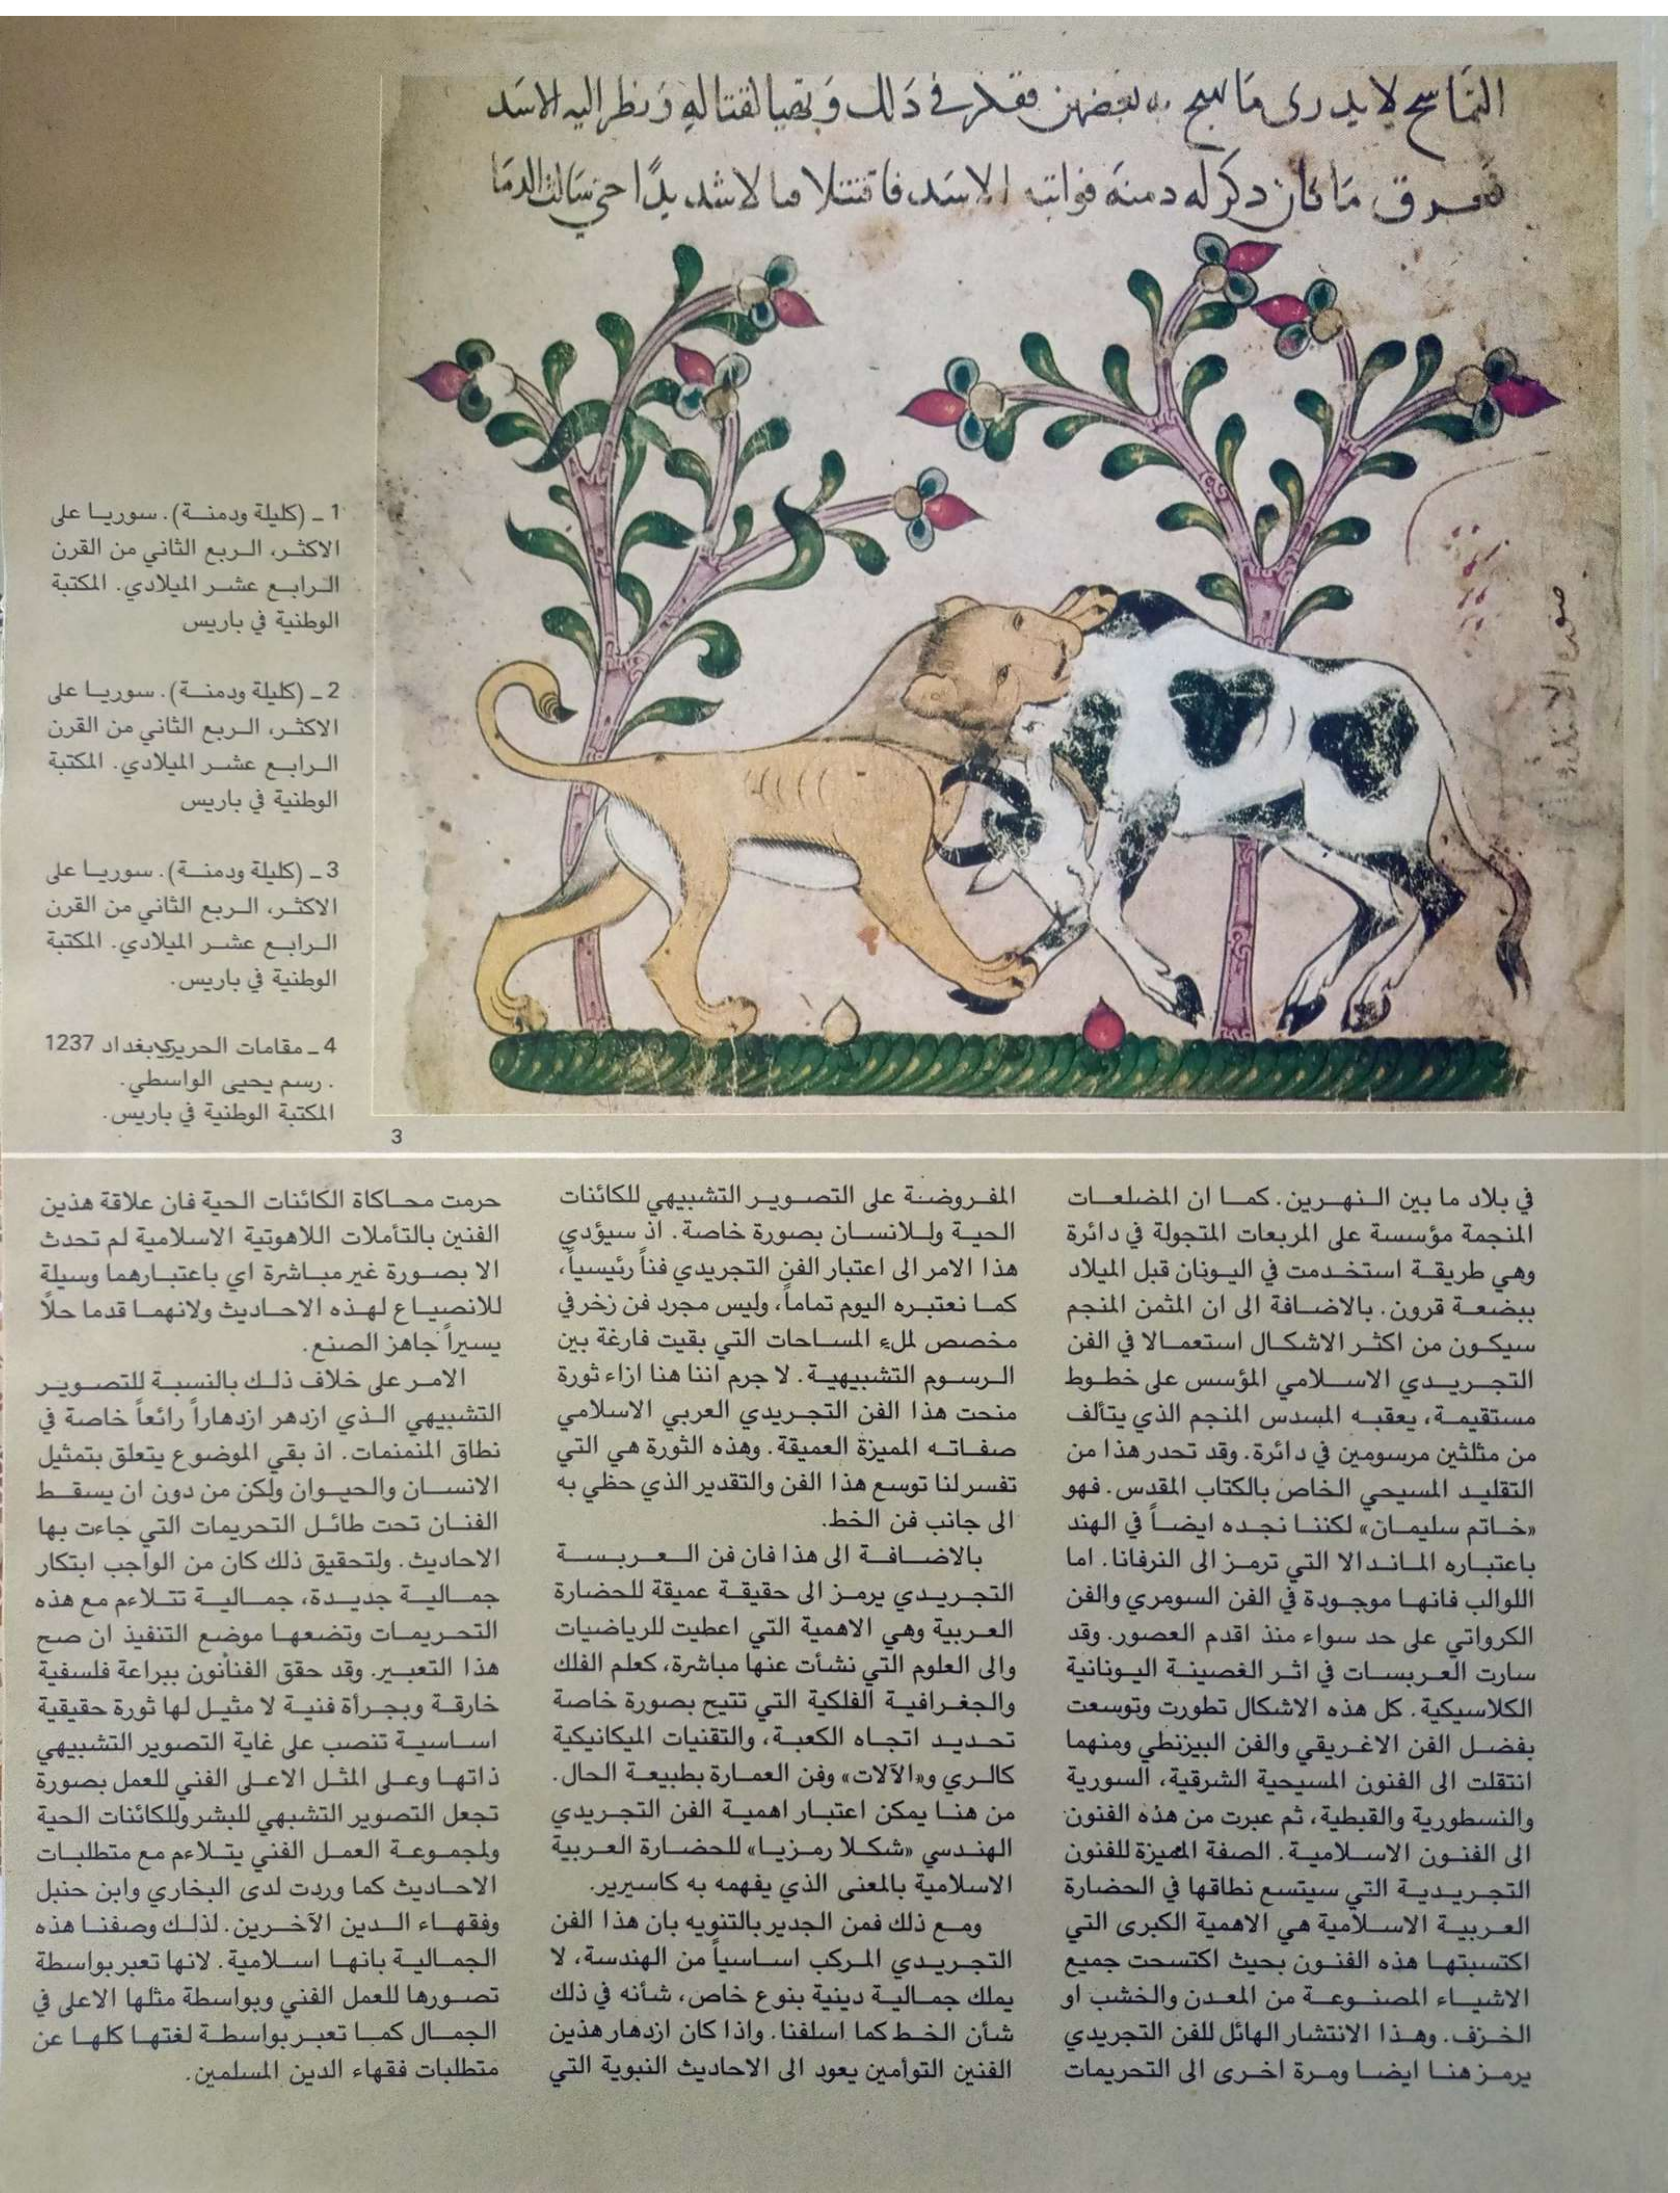 لا يدرى ما
فى ذلك و لقتاله و نظر اليه الاسد
ما كان ذكر له دمنه الاسد فاقتتلا شديدًا حتى سالت الدما
1 ـ (كليلة ودمنـــة). سوريــا على
الاكثـر، الــربع الثاني من القرن
الـرابــع عشــر الميلادي. المكتبة
الوطنية في باريس
2 ـ (كليلة ودمنـــة). سوريــا على
الاكثـر، الــربع الثاني من القرن
الـرابــع عشــر الميلادي. المكتبة
الوطنية في باريس
3 ـ (كليلة ودمنـــة). سوريــا على
الاكثـر، الــربع الثاني من القرن
الـرابــع عشــر الميلادي. المكتبة
الوطنية في باريس.
4 ـ مقامات الحريري بغداد 1237
. رسم يحيى الواسطي.
المكتبة الوطنية في باريس.
3
في بلاد ما بين الـنهـرين. كمــا ان المضلعــات
المنجمة مؤسسة على المربعات المتجولة في دائرة
وهي طريقــة استخــدمت في اليـونان قبل الميلاد
ببضعــة قرون. بالاضــافة الى ان المثمن المنجم
سيكــون من اكثــر الاشكــال استعمــالا في الفن
التجـريــدي الاســلامي المؤسس على خطــوط
مستقيمــة، يعقبــه المسدس المنجم الذي يتألف
من مثلثين مرسومين في دائرة. وقد تحدر هذا من
التقليــد المسيحي الخاص بالكتاب المقدس. فهو
«خــاتم سليمــان» لكننــا نجــده ايضــاً في الهند
باعتبــاره المانــدالا التي ترمــز الى النرفانا. اما
اللوالب فانهــا موجــودة في الفن السومري والفن
الكرواتي على حد سواء منذ اقدم العصور. وقد
سارت العــربســات في اثــر الغصينــة اليــونانية
الكلاسيكية. كل هذه الاشكال تطورت وتوسعت
بفضــل الفن الاغــريقي والفن البيزنطي ومنهما
انتقلت الى الفنون المسيحية الشرقية، السورية
والنسطورية والقبطية، ثم عبرت من هذه الفنون
الى الفنــون الاســلاميــة. الصفة المميزة للفنون
التجــريديــة التي سيتســع نطاقهـا في الحضارة
العــربيــة الاســلاميــة هي الاهمية الكبرى التي
اكتسبتهــا هذه الفنــون بحيث اكتسحت جميع
الاشيــاء المصنــوعــة من المعــدن والخشب او
الخــزف. وهــذا الانتشار الهائل للفن التجريدي
يرمــز هنــا ايضــا ومــرة اخــرى الى التحريمات
المفــروضــة على التصــويــر التشبيهي للكائنات
الحيــة ولــلانســان بصورة خاصة. اذ سيؤدي
هذا الامر الى اعتبار الفن التجريدي فناً رئيسياً،
كمــا نعتبــره اليوم تماماً، وليس مجرد فن زخرفي
مخصص لملء المســاحات التي بقيت فارغة بين
الــرســوم التشبيهيــة. لا جرم اننا هنا ازاء ثورة
منحت هذا الفن التجــريدي العربي الاسلامي
صفاتــه المميزة العميقة. وهذه الثورة هي التي
تفسر لنا توسع هذا الفن والتقدير الذي حظي به
الى جانب فن الخط.
بالاضــافــة الى هذا فان فن الــعــربــســة
التجــريــدي يرمــز الى حقيقــة عميقة للحضارة
العــربية وهي الاهمية التي اعطيت للرياضيات
والى العلوم التي نشأت عنها مباشرة، كعلم الفلك
والجغــرافيــة الفلكية التي تتيح بصورة خاصة
تحــديــد اتجــاه الكعبــة، والتقنيات الميكانيكية
كالــري و«الآلات» وفن العمــارة بطبيعــة الحال.
من هنــا يمكن اعتبــار اهميــة الفن التجــريدي
الهنــدسي «شكــلا رمــزيــا» للحضــارة العــربية
الاسلامية بالمعنى الذي يفهمه به كاسيرير.
ومــع ذلك فمن الجدير بالتنويه بان هذا الفن
التجــريــدي المــركب اســاسيــاً من الهندسة، لا
يملك جمــاليــة دينية بنوع خاص، شأنه في ذلك
شأن الخــط كما اسلفنا. واذا كان ازدهار هذين
الفنين التوأمين يعود الى الاحاديث النبوية التي
حرمت محــاكاة الكائنات الحية فان علاقة هذين
الفنين بالتأملات اللاهوتية الاسلامية لم تحدث
الا بصــورة غير مبــاشرة اي باعتبــارهما وسيلة
للانصيــاع لهــذه الاحــاديث ولانهمــا قدما حلاً
يسيراً جاهز الصنع.
الامــر على خلاف ذلــك بالنسبة للتصــويــر
التشبيهي الــذي ازدهر ازدهاراً رائعاً خاصة في
نطاق المنمنمات. اذ بقي الموضوع يتعلق بتمثيل
الانســان والحيــوان ولكن من دون ان يسقــط
الفنــان تحت طائــل التحريمات التي جاءت بها
الاحاديث. ولتحقيق ذلك كان من الواجب ابتكار
جمــاليــة جديــدة، جمــاليــة تتــلاءم مع هذه
التحــريمــات وتضعهــا موضع التنفيذ ان صح
هذا التعبــير. وقد حقق الفنانون ببراعة فلسفية
خارقــة وبجــرأة فنيــة لا مثيــل لها ثورة حقيقية
اســاسيــة تنصب على غاية التصوير التشبيهي
ذاتهــا وعلى المثــل الاعــلى الفني للعمل بصورة
تجعل التصوير التشبهي للبشر وللكائنات الحية
ولمجمــوعــة العمــل الفني يتــلاءم مع متطلبــات
الاحــاديث كما وردت لدى البخاري وابن حنبل
وفقهــاء الــدين الآخــرين. لذلــك وصفنــا هذه
الجمــالية بانهــا اســلامية. لانها تعبر بواسطة
تصــورها للعمل الفني وبواسطة مثلها الاعلى في
الجمــال كمــا تعبــر بواسطــة لغتهــا كلهــا عن
متطلبات فقهاء الدين المسلمين.